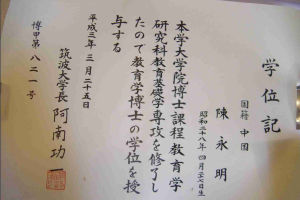 学位記
国籍 中国
陳永明
昭和二十八年四月二七日生
本学大学院博士課程教育学
研究科教育基礎学専攻を修了し
たので教育学博士の学位を授
与する
平成三年三月二十五日
筑波大学長 阿南功一
博甲第八二一号